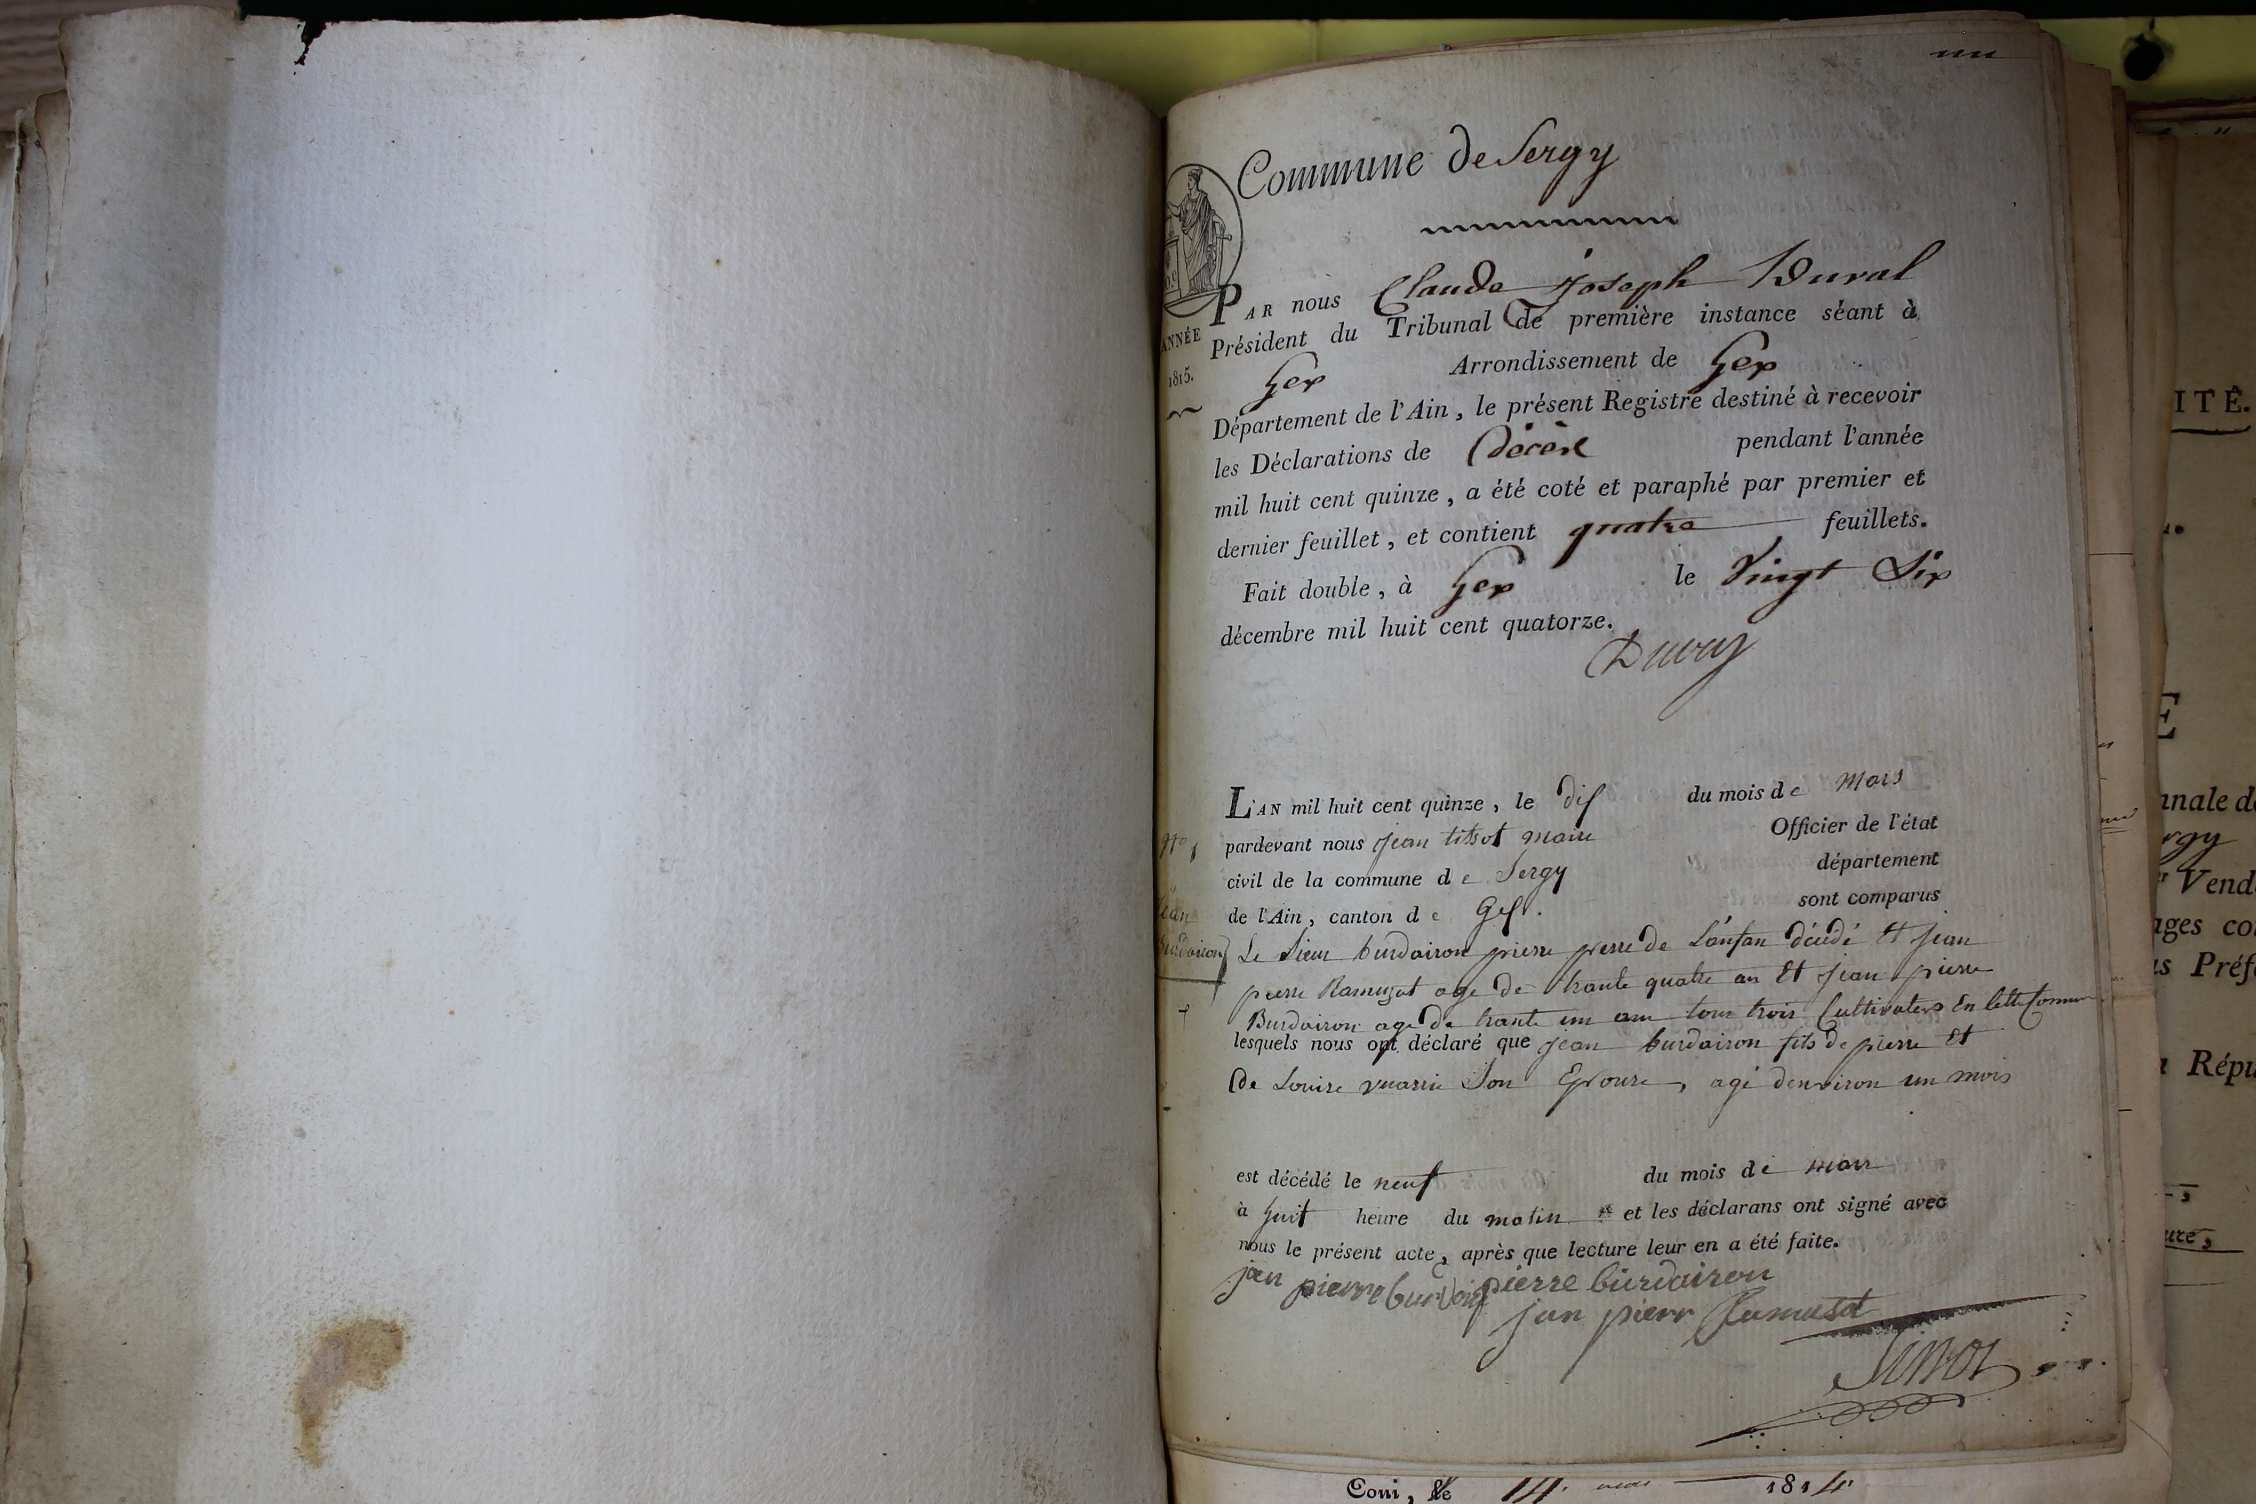 un
Commune de Sergy
PAR nous Claude Joseph Duval
Président du Tribunal de première instance séant à
Gex Arrondissement de Gex
Département de l'Ain, le présent Registre destiné à recevoir
les Déclarations de Décès pendant l'année
mil huit cent quinze, a été coté et paraphé par premier et
dernier feuillet, et contient quatre feuillets.
Fait double, à Gex le Vingt Six
décembre mil huit cent quatorze.
Duval
ANNÉE
1815.
L'AN mil huit cent quinze, le dix du mois de mars
pardevant nous jean tissot maire Officier de l'état
civil de la commune de Sergy département
de l'Ain, canton de Gex. sont comparus
Le Sieur burdairon pierre perre de L'anfan décédé et jean
pierre Ramuzat age de trante quatre an et jean pierre
Burdairon age de trante un an tour trois Cultivaters En cette Commune
lesquels nous ont déclaré que jean burdairon fils de pierre et
De Louise son Epouse, agé denviron un mois
est décédé le neuf du mois de mars
à huit heure du matin et les déclarans ont signé avec
nous le présent acte, après que lecture leur en a été faite.
jean pierre burdairon pierre burdairon
jean pierr Ramusat
Tissot
N° 1
Jean
Burdairon
Coni, le 14 mars 1814
ITÉ.
E
nnale de
rgy
Vend
ages co
s Préf
Répu
ure,